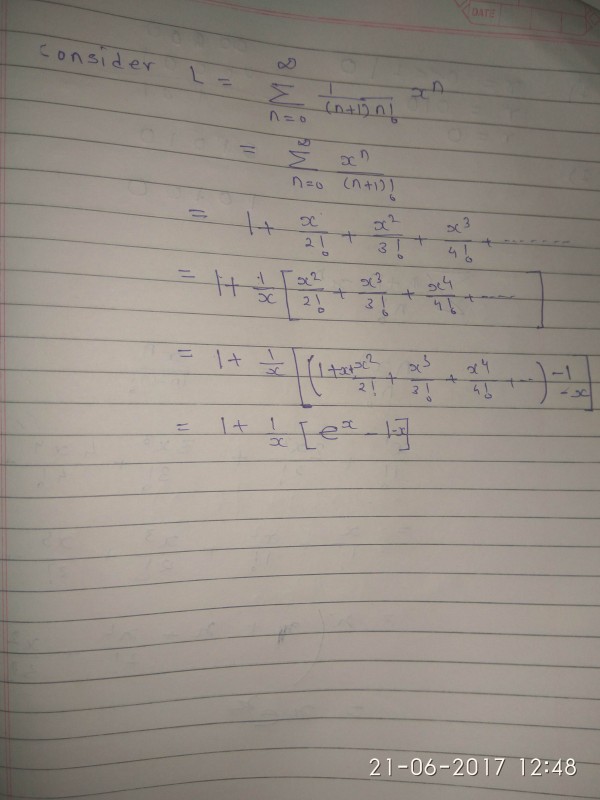 DATE
Consider L = ∑_{n=0}^{∞} 1/((n+1) n!) x^n
= ∑_{n=0}^{∞} x^n/(n+1)!
= 1 + x/2! + x^2/3! + x^3/4! + ------
= 1 + 1/x [x^2/2! + x^3/3! + x^4/4! + ----]
= 1 + 1/x [(1+x+x^2/2! + x^3/3! + x^4/4! + --) -1 -x]
= 1 + 1/x [e^x - 1-x]
21-06-2017 12:48